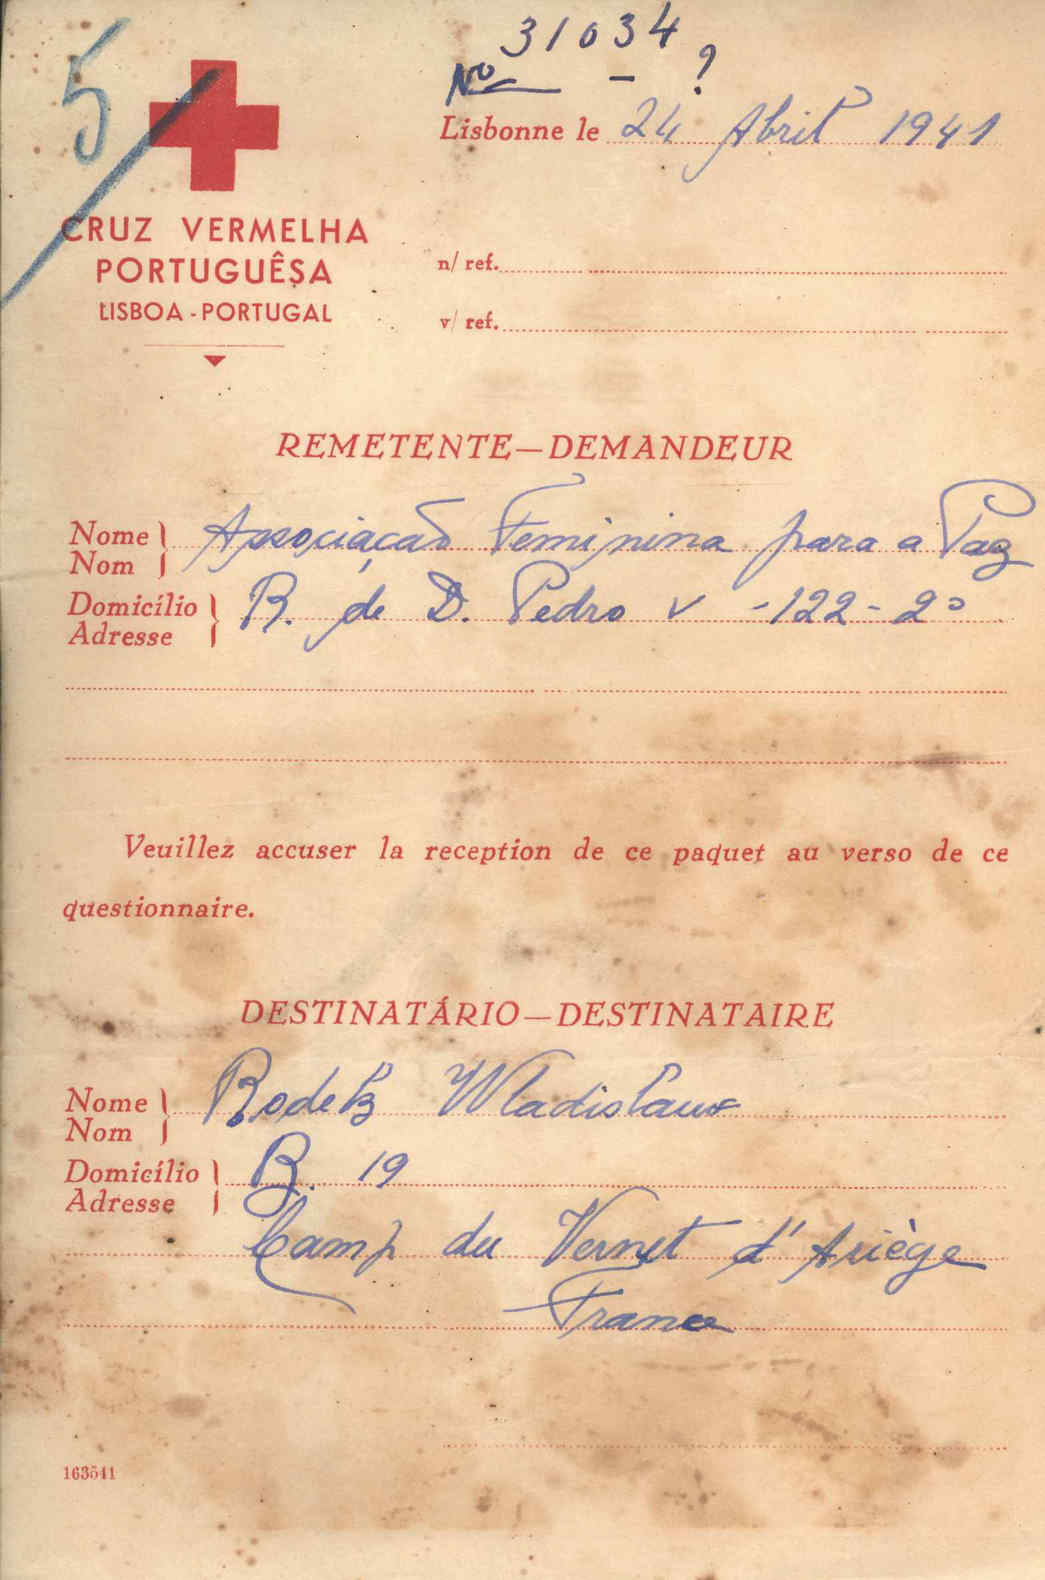 5
31034
Nº - ?
Lisbonne le 24 Abril 1941
CRUZ VERMELHA
PORTUGUÊSA
LISBOA - PORTUGAL
n/ ref.
v/ ref.
REMETENTE—DEMANDEUR
Nome } Associação Feminina para a Paz
Nom
Domicílio } R. de D. Pedro V - 122 - 2º
Adresse
Veuillez accuser la reception de ce paquet au verso de ce
questionnaire.
DESTINATÁRIO—DESTINATAIRE
Nome } Wladislaux
Nom
Domicílio } B. 19
Adresse
Camp du Vernet d'Ariège
France
163541